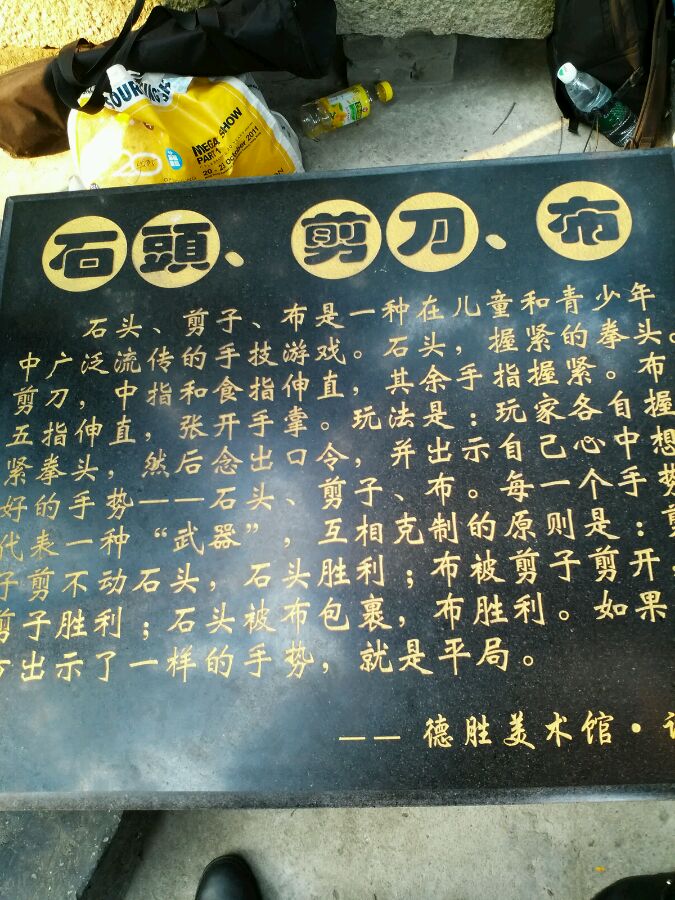 MEGA SHOW
PART 1
20 - 21 October 2011
石頭、剪刀、布
石头、剪子、布是一种在儿童和青少年
中广泛流传的手技游戏。石头，握紧的拳头。
剪刀，中指和食指伸直，其余手指握紧。布
五指伸直，张开手掌。玩法是：玩家各自握
紧拳头，然后念出口令，并出示自己心中想
好的手势——石头、剪子、布。每一个手势
代表一种“武器”，互相克制的原则是：剪
子剪不动石头，石头胜利；布被剪子剪开，
剪子胜利；石头被布包裹，布胜利。如果
方出示了一样的手势，就是平局。
——德胜美术馆·